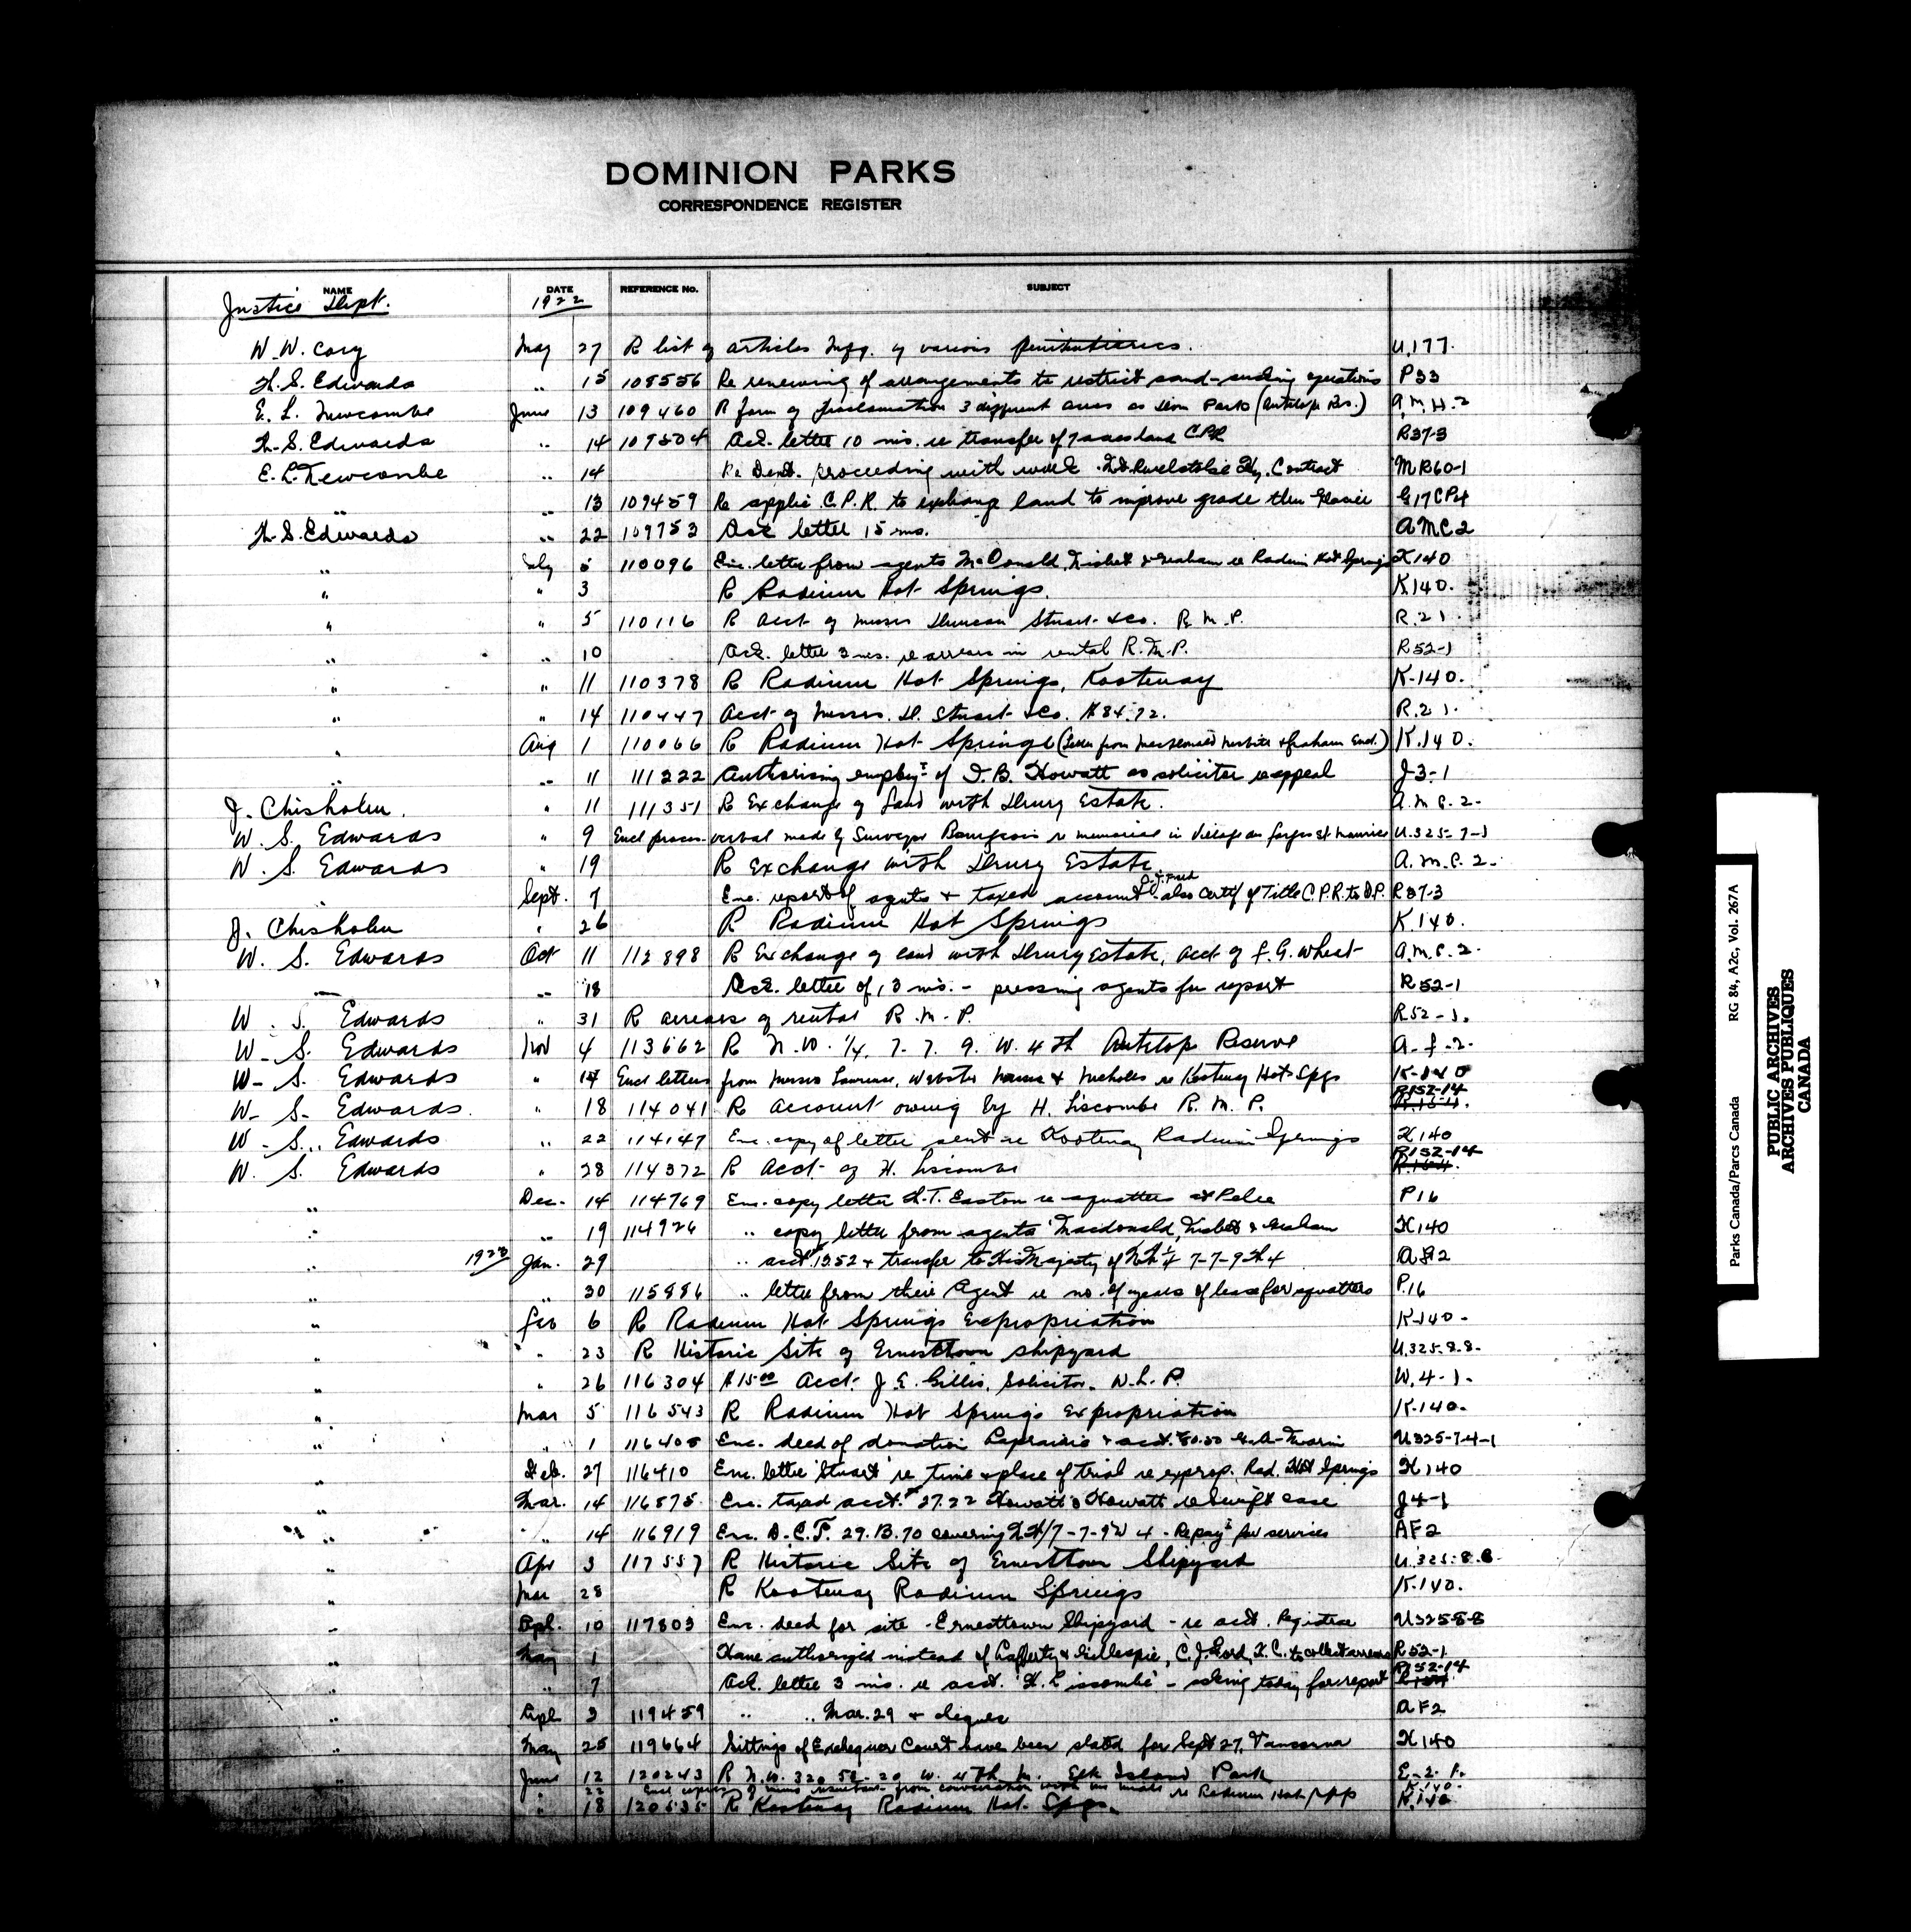 DOMINION PARKS
CORRESPONDENCE REGISTER
NAME DATE REFERENCE No. SUBJECT
Justice Dept. 1922
W. W. Cory May 27 R list of articles mfg. of various penitentiaries. U.177.
W. S. Edwards " 15 108556 Re renewing of arrangements to restrict sand-sucking operations P33
E. L. Newcombe June 13 109460 R form of Proclamation 3 different areas as Dom Parks (Antelope Res.) A.M.H.2
W. S. Edwards " 14 109504 Ack. letter 10 ins. re transfer of 7 acres land CPR R37-3
E. L. Newcombe " 14 Re Dent. proceeding with work Mt. Revelstoke Hy. Contract MR60-1
" " 13 109459 Re applic C.P.R. to exchange land to improve grade thru Glacier G17CP4
W. S. Edwards " 22 109753 Ack letter 15 ins. AMC2
" July 5 110096 Enc. letter from agents McDonald, Nisbet & Graham re Radium Hot Springs K140
" " 3 R Radium Hot Springs. K140.
" " 5 110116 R acct of Messrs Duncan Stuart & Co. R. M. P. R.21
" " 10 Ack. letter 3 ins. re arrears in rental R.M.P. R52-1
" " 11 110378 R Radium Hot Springs, Kootenay K-140.
" " 14 110447 Acct of Messrs. D. Stuart & Co. $84.72. R.21.
" Aug 1 110066 R Radium Hot Springs (Letter from MacDonald Nesbitt & Graham Encl.) K.140.
" " 11 111222 Authorising employt of D. B. Howatt as solicitor re appeal J-3-1
J. Chisholm. " 11 111351 R Exchange of land with Drury Estate. A.M.C.2-
W. S. Edwards " 9 Encl proces-verbal made by Surveyor Bourgeois re memorial in Village des forges St Maurice U.325-7-1
W. S. Edwards " 19 R Exchange with Drury Estate A.M.C.2-
Sept. 7 Enc. report of agents & taxed account also Certif of Title C.P.R. to D.P. R37-3
J. Chisholm " 26 R Radium Hot Springs K.140.
W. S. Edwards Oct 11 112898 R Exchange of land with Drury Estate, acct of F. G. Wheat A.M.C.2.
" " 18 Ack. letter of 13 ins. - pressing agents for report R52-1
W. S. Edwards " 31 R arrears of rental R.M.P. R52-1.
W. S. Edwards Nov 4 113662 R N.W. 1/4, 7. 7. 9. W. 4th Antelope Reserve A-f-2-
W. S. Edwards " 14 Encl letters from Messrs Lawrence, Webster & Nicholes re Kootenay Hot Spgs K-140
W. S. Edwards. " 18 114041 R account owing by H. Liscombe R. M. P. R152-14
W. S. Edwards " 22 114147 Enc. copy of letter sent re Kootenay Radium Springs K140
W. S. Edwards " 28 114372 R Acct. of H. Liscombe R152-14
" Dec. 14 114769 Enc. copy letter A.T. Easton re squatters at Pelee P16
" " 19 114926 " copy letter from agents Macdonald, Nisbet & Graham K140
" 1923 Jan. 29 " acct. 13.52 & transfer to His Majesty of NW 1/4 7-7-9 W 4 AF2
" " 30 115886 " letter from their Agent re no. of years of lease for squatters P.16
" Feb 6 R Radium Hot Springs Expropriation K-140-
" " 23 R Historic Site of Ernesttown Shipyard U.325-8.8-
" " 26 116304 $15.00 Acct. J. E. Gillis, Solicitor. W.L.P. W.4-1-
" Mar 5 116543 R Radium Hot Springs Expropriation K-140-
" " 1 116405 Enc. deed of donation Laprairie & acct. U325-7-4-1
" Feb. 27 116410 Enc. letter Stuart re time & place of trial re exprop. Rad. Hot Springs K140
" Mar. 14 116875 Enc. taxed acct. $27.22 Howatt & Howatt re Swift case J4-1
" " 14 116919 Enc. D.C.T. 29.13.70 covering NW/7-7-9 W 4 - Repayt for services AF2
" Apr 3 117557 R Historic Site of Ernesttown Shipyard U.325-8.8-
" Mar 28 R Kootenay Radium Springs K.140.
" Apl. 10 117803 Enc. deed for site Ernesttown Shipyard - re acct. Registrar U325-8-8
" May 1 Have authorized instead of Lafferty & Gillespie, C. J. Ford, K.C. to collect arrears R52-1
" " 7 Ack. letter 3 ins. re acct. H. Liscombe - asking today for report R152-14
" Apl 3 119459 " " Mar. 29 & cheque AF2
" May 25 119664 Sittings of Exchequer Court have been slated for Sept 27, Vancouver K140
" June 12 120243 R N.W. 320 52-20 W. 4th M. Elk Island Park E-2-P.
" 22 Encl copies of memo resultant from conversation with re Radium Hot Spgs K.140-
" " 18 120535 R Kootenay Radium Hot Spgs. K.140
Parks Canada/Parcs Canada RG 84, A2c, Vol. 267A
PUBLIC ARCHIVES
ARCHIVES PUBLIQUES
CANADA